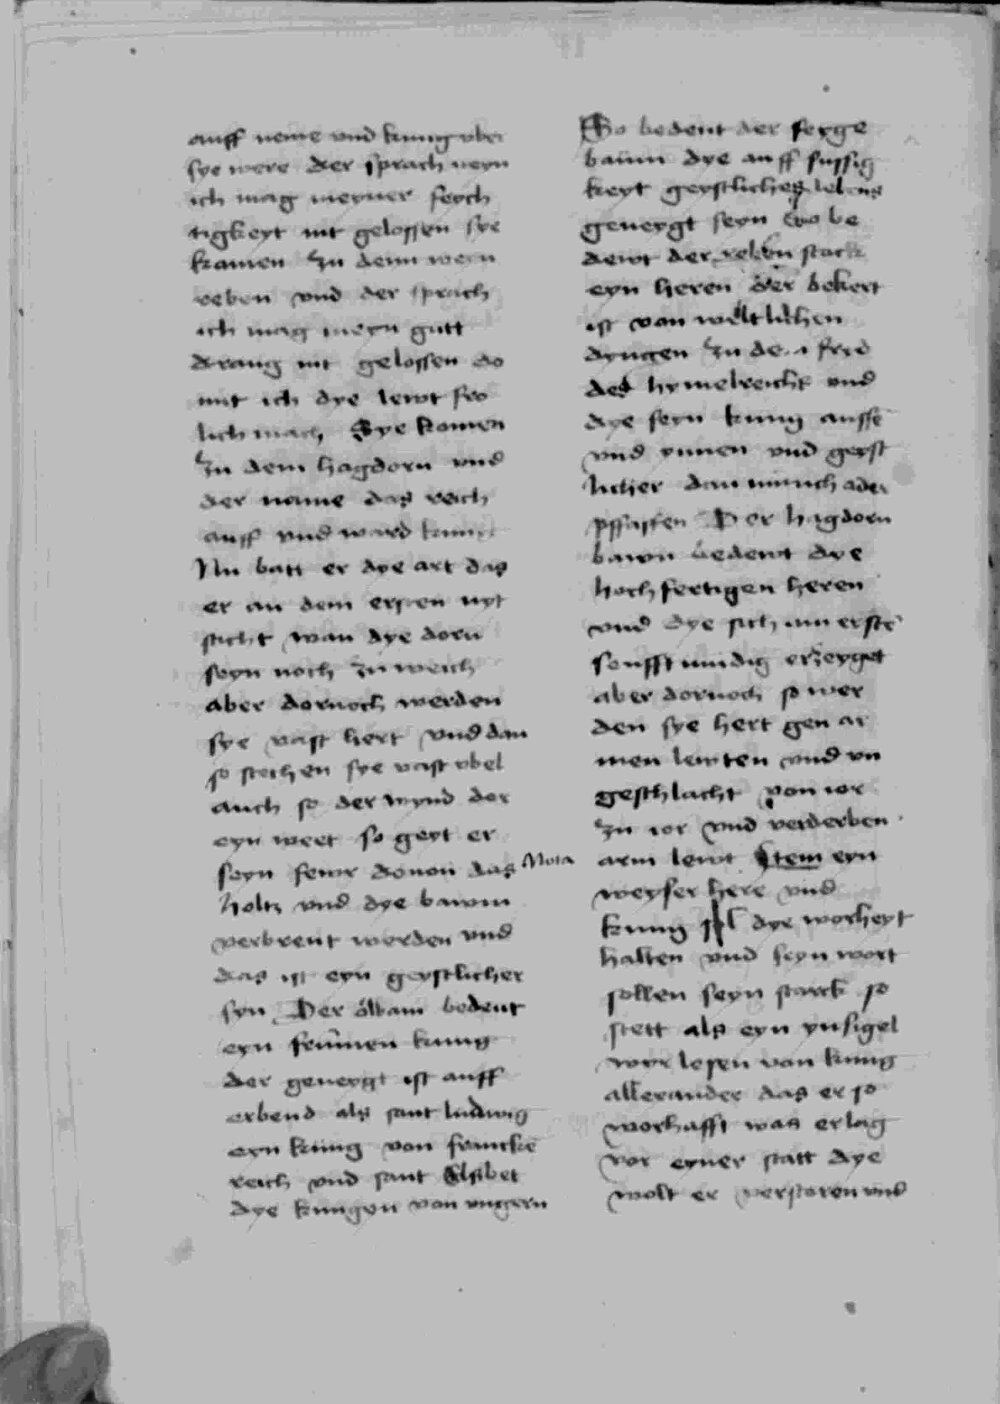 auff neme vnd kunig vber
sye were der sprach neyn
ich mag meyner feych
tigkeyt nit gelossen sye
kamen zu dem wein
reben vnd der sprach
ich mag meyn gutt
drang nit gelossen do
mit ich dye lewt fro
lich mach Sye komen
zu dem hagdorn vnd
der name das reich
auff vnd ward kunig
Nu hatt er dye art das
er an dem ersten nyt
sticht wan dye dorn
seyn noch zu weich
aber dornoch werden
sye vast hert vnd dan
so stechen sye vast vbel
auch so der wynd dor
eyn weet so geyt er
seyn fewr donon das
holtz vnd dye bawm
verbrent werden vnd
das ist eyn geystlicher
syn Der ölbam bedent
eyn frummen kunig
der geneygt ist auff
erbend als sant ludwig
eyn kunig von francke
reich vnd sant Elsbet
dye kungen von vngern
So bedent der feyge
baum dye auff sussig
keyt geystliches lebens
geneygt seyn So be
dewt der reben stock
eyn heren der bekert
ist von weltlichen
dyngen zu dem frid
des hymelreichs vnd
dye seyn kunig aussē
vnd ynnen vnd geyst
licher dan munch ader
pffaffen Der hagdorn
bawm bedewt dye
hochfertigen heren
vnd dye sich am erstē
senfftmudig erzeyget
aber dornoch so wer
den sye hert gen ar
men lewten vnd vn
geschlacht von ior
zu ior vnd verderben
Nota arm lewt Item eyn
weyser here vnd
kunig sol dye worheyt
halten vnd seyn wort
sollen seyn starck so
stett als eyn ynsigel
wyr lesen von kunig
allexander das er so
worhafft was er lag
vor eyner statt dye
wolt er verstoren vnd